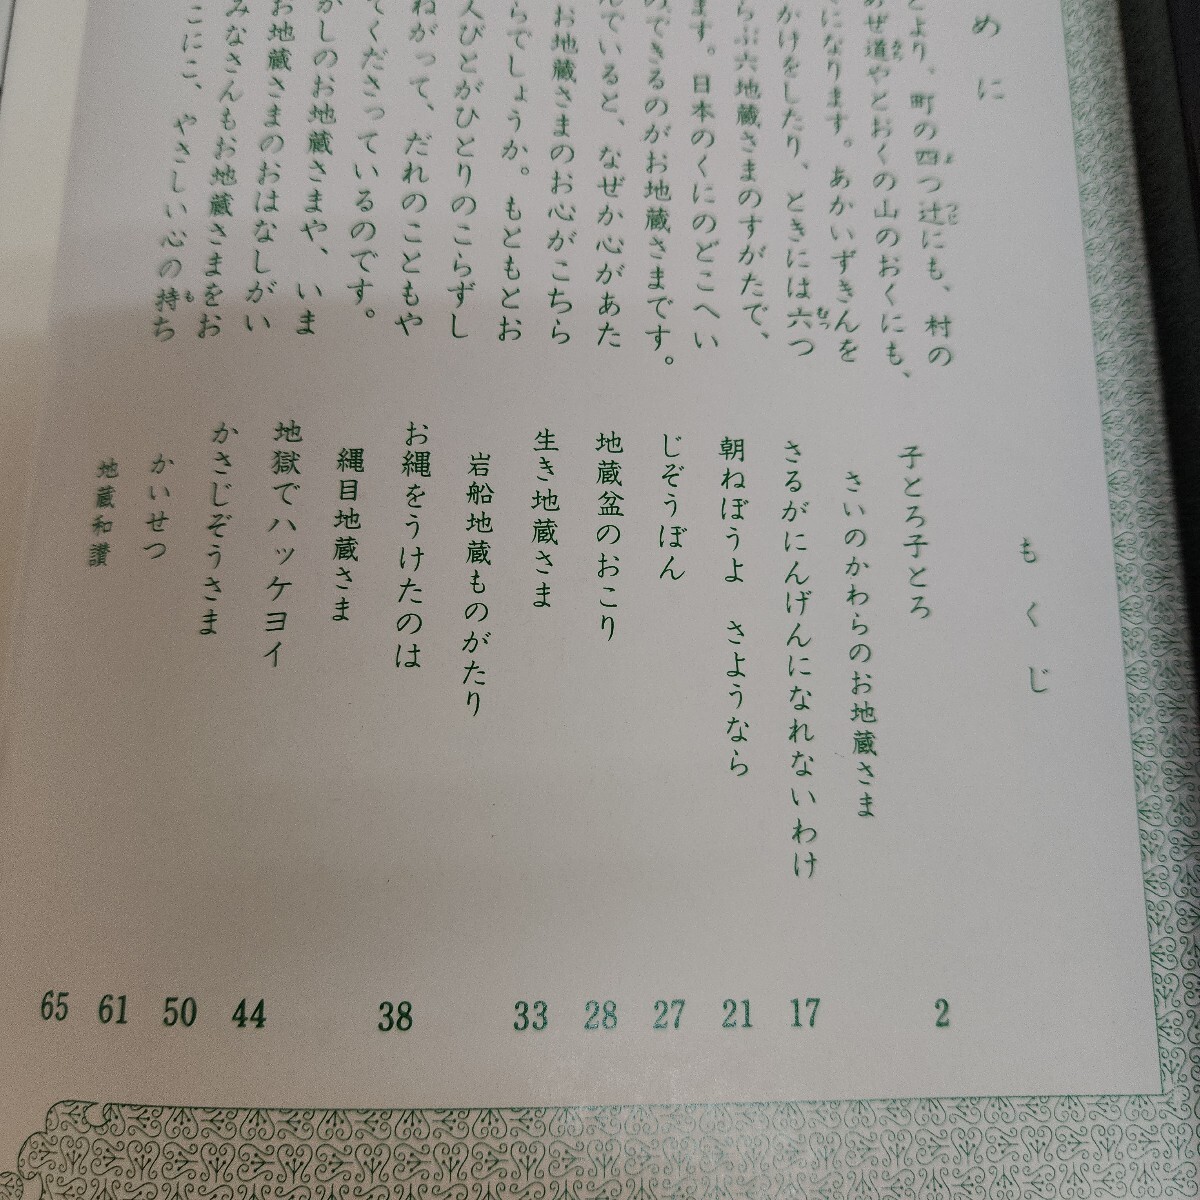 めに
とより、町の四つ辻にも、村の
あぜ道やとおくの山のおくにも、
になります。あかいずきんを
かけをしたり、ときには六つ
らぶ六地蔵さまのすがたで、
ます。日本のくにのどこへい
のできるのがお地蔵さまです。
んでいると、なぜか心があた
お地蔵さまのお心がこちら
らでしょうか。もともとお
人びとがひとりのこらずし
ねがって、だれのこともや
てくださっているのです。
かしのお地蔵さまや、いま
お地蔵さまのおはなしがい
みなさんもお地蔵さまをお
こにこ、やさしい心の持ち
もくじ
子とろ子とろ 2
さいのかわらのお地蔵さま
さるがにんげんになれないわけ 17
朝ねぼうよ さようなら 21
じぞうぼん 27
地蔵盆のおこり 28
生き地蔵さま 33
岩船地蔵ものがたり
お縄をうけたのは 38
縄目地蔵さま
地獄でハッケヨイ 44
かさじぞうさま 50
かいせつ 61
地蔵和讃 65